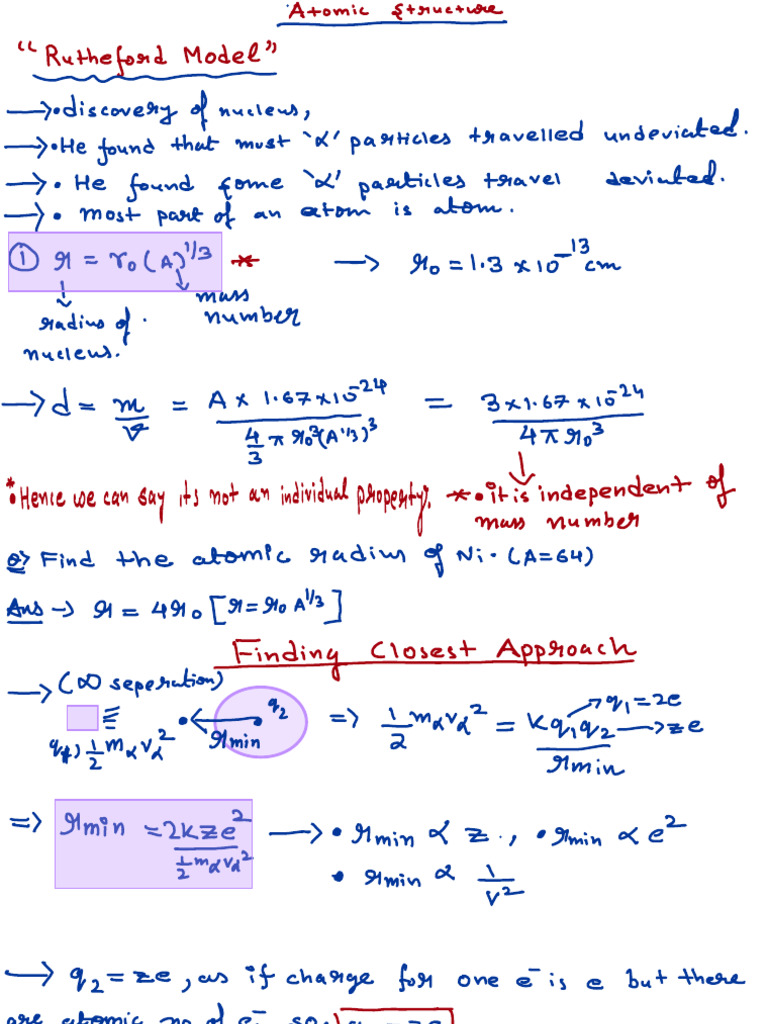 Atomic Structure
"Rutheford Model"
→ • discovery of nucleus,
→ • He found that must 'α' particles travelled undeviated.
→ • He found some 'α' particles travel deviated.
→ • most part of an atom is atom.
① r = r₀(A)^1/3 * → r₀ = 1.3 × 10⁻¹³ cm
↓ radius of nucleus. ↓ mass number
→ d = m/V = A × 1.67 × 10⁻²⁴ / 4/3 π r₀³ (A^1/3)³ = 3 × 1.67 × 10⁻²⁴ / 4 π r₀³
* • Hence we can say its not an individual property. * • it is independent of
mass number
Q> Find the atomic radius of Ni. (A=64)
Ans → r = 4r₀ [r = r₀ A^1/3]
Finding Closest Approach
→ (∞ seperation)
q₂ ⇒ 1/2 mαvα² = Kq₁q₂ / rmin → q₁ = 2e → ze
1/2 mαvα² rmin
⇒ rmin = 2kze² / 1/2 mαvα² → • rmin ∝ z., • rmin ∝ e²
• rmin ∝ 1/v²
→ q₂ = ze, as if charge for one e⁻ is e but there
are atomic no of e⁻ so,